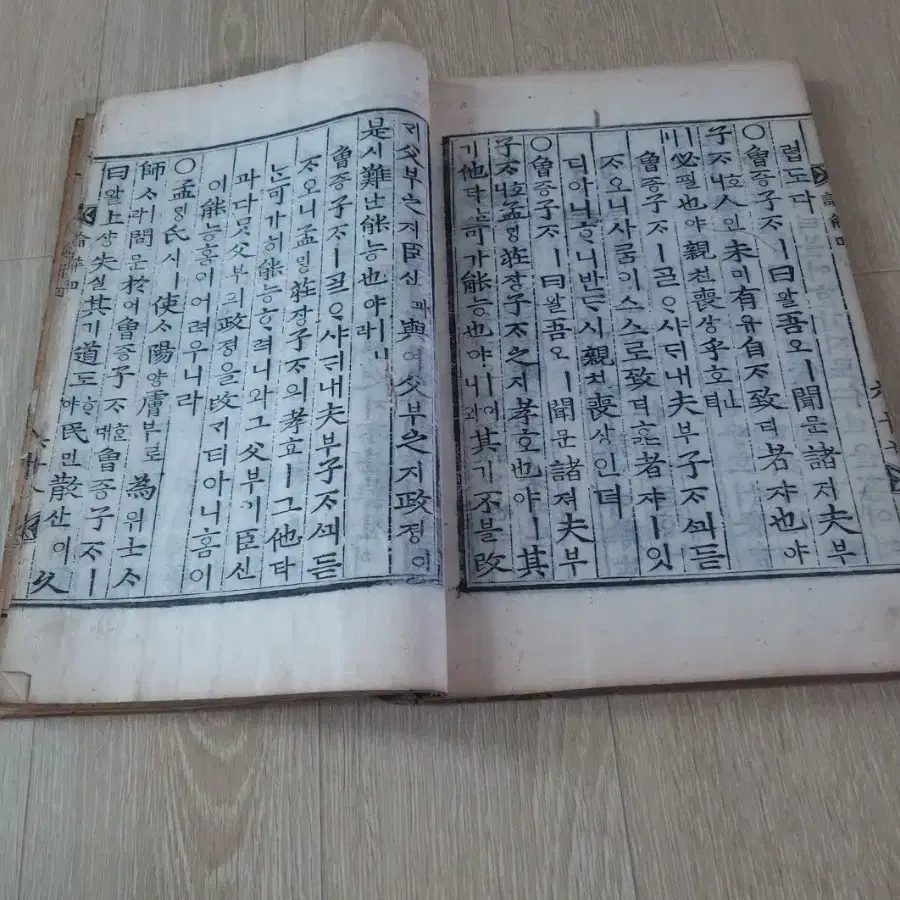 럽도다
○曾증子ᄌᆞㅣ曰왈吾오ㅣ聞문諸져夫부
子ᄌᆞ호니人인未미有유自ᄌᆞ致티者쟈也야
ㅣ나必필也야親친喪상乎호ᅟᅵᆫ뎌
曾증子ᄌᆞㅣᄀᆞᆯᄋᆞ샤ᄃᆡ내夫부子ᄌᆞᄭᅴ듣
ᄌᆞ오니사ᄅᆞᆷ이스스로致티ᄒᆞᆯ者쟈ㅣ잇
디아니ᄒᆞ니반ᄃᆞ시親친喪상인뎌
○曾증子ᄌᆞㅣ曰왈吾오ㅣ聞문諸져夫부
子ᄌᆞ호니孟ᄆᆡᆼ莊장子ᄌᆞ之지孝효也야ㅣ其
기他타ᄂᆞᆫ可가能능也야ㅣ어니와其기不블改
ᄀᆡ父부之지臣신과與여父부之지政졍이
是시難난能능也야ㅣ니라
曾증子ᄌᆞㅣᄀᆞᆯᄋᆞ샤ᄃᆡ내夫부子ᄌᆞᄭᅴ듣
ᄌᆞ오니孟ᄆᆡᆼ莊장子ᄌᆞ의孝효ㅣ그他타
ᄂᆞᆫ可가히能능ᄒᆞ려니와그父부의臣신
과다ᄆᆞᆺ父부의政졍을改ᄀᆡ티아니홈이
이能능홈이어려우니라
○孟ᄆᆡᆼ氏시ㅣ使ᄉᆞ陽양膚부로爲위士ᄉᆞ
師ᄉᆞㅣ라問문於어曾증子ᄌᆞᄒᆞᆫ대曾증子ᄌᆞㅣ
曰왈上샹失실其기道도ᄒᆞ야民민散산이久